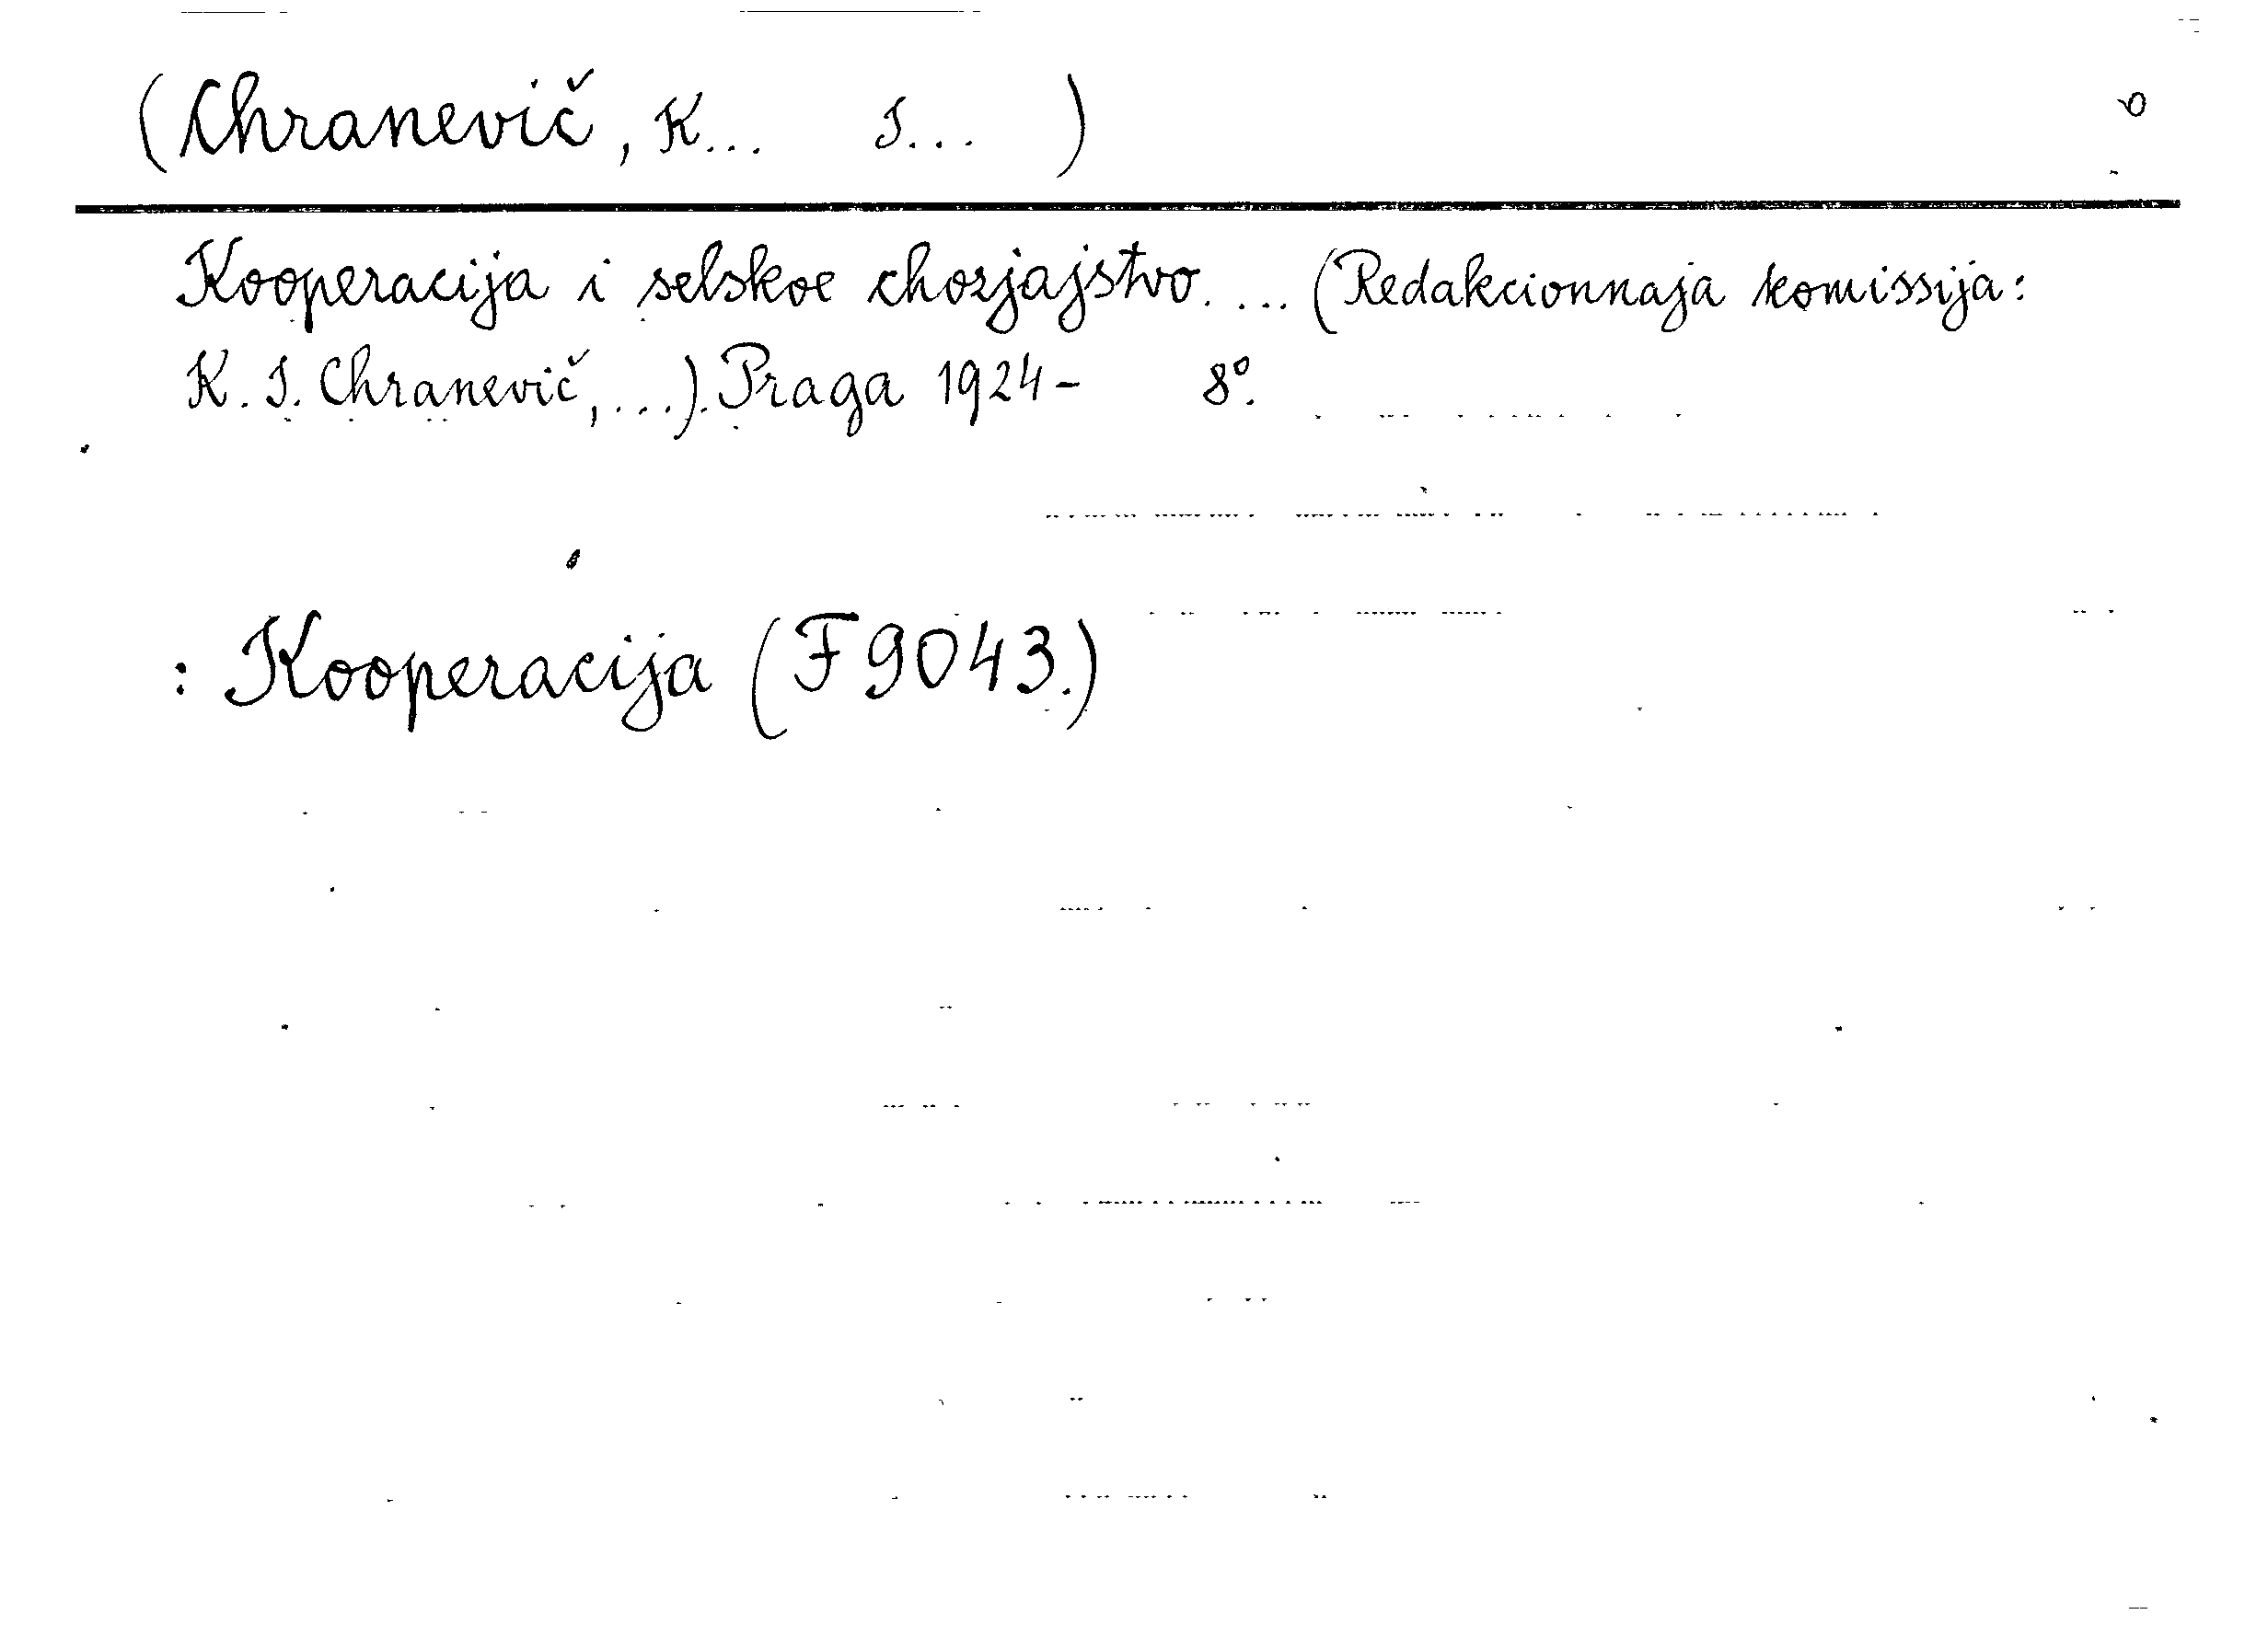 (Chranevič, K... I... )
Kooperacija i selskoe chozjajstvo. ... (Redakcionnaja komissija:
K. I. Chranevič, ...). Praga 1924- 8°.
: Kooperacija (F 9043.)